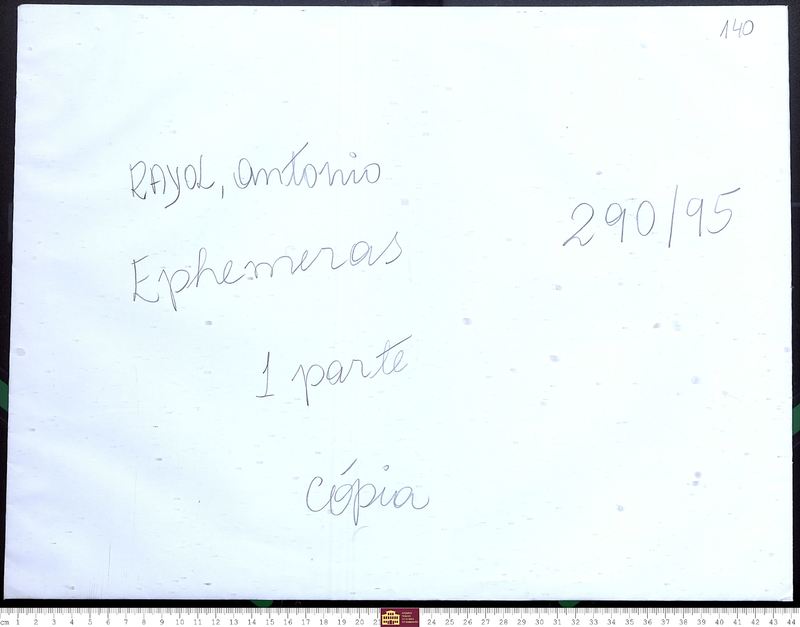 140
RAYOL, Antonio
290/95
Ephemeras
1 parte
Cópia
cm 1 2 3 4 5 6 7 8 9 10 11 12 13 14 15 16 17 18 19 20 24 25 26 27 28 29 30 31 32 33 34 35 36 37 38 39 40 41 42 43 44